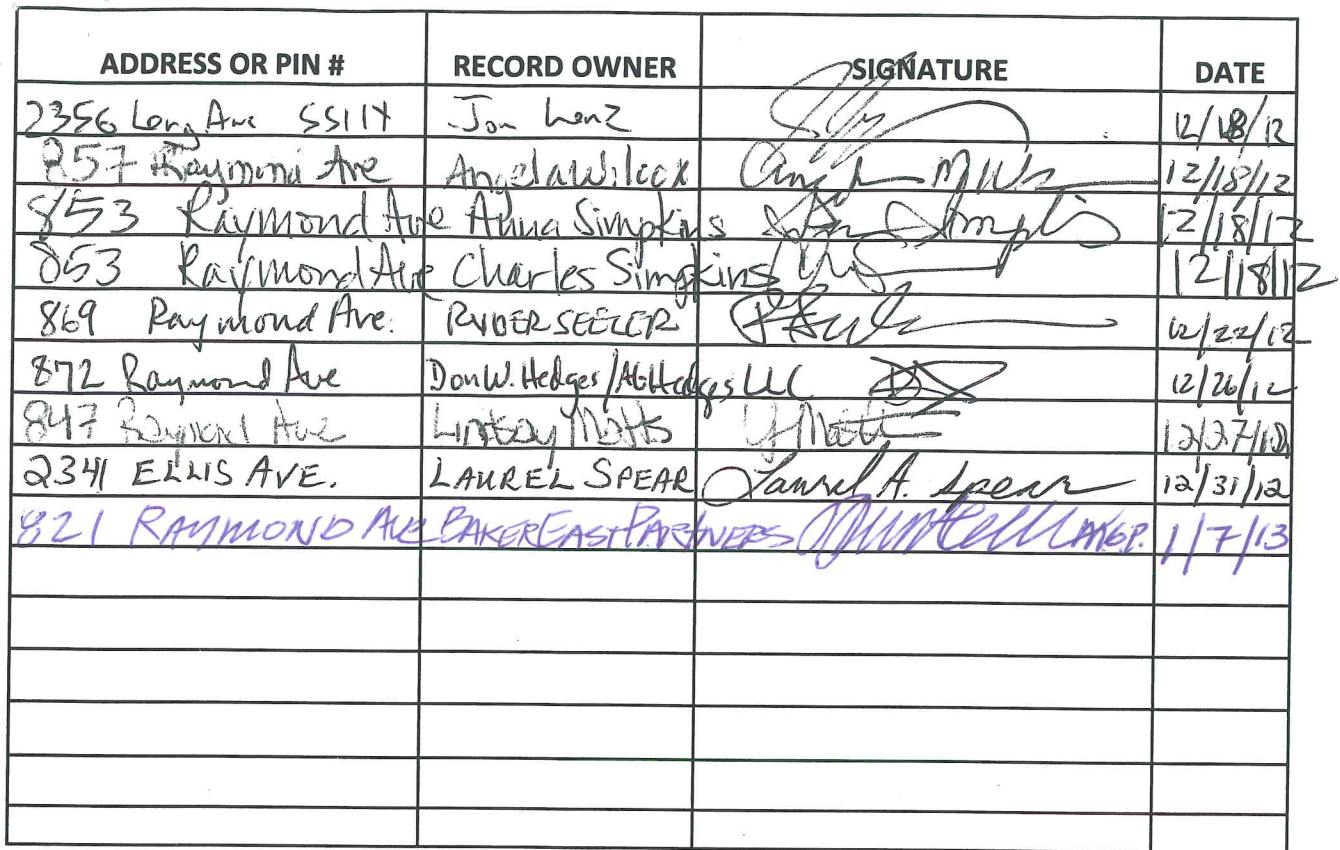 ADDRESS OR PIN # RECORD OWNER SIGNATURE DATE
2356 Long Ave 55114 Jon Lenz 12/18/12
857 Raymond Ave Angela Wilcox 12/18/12
853 Raymond Ave Anna Simpkins 12/18/12
853 Raymond Ave Charles Simpkins 12/18/12
869 Raymond Ave. RYDER SEELER 12/22/12
872 Raymond Ave Don W. Hedges / LLC 12/26/12
847 Raymond Ave Lindsay Matts 12/27/12
2341 ELLIS AVE. LAUREL SPEAR Laurel A. Spear 12/31/12
821 RAYMOND AVE BAKER EAST PARTNERS 1/7/13